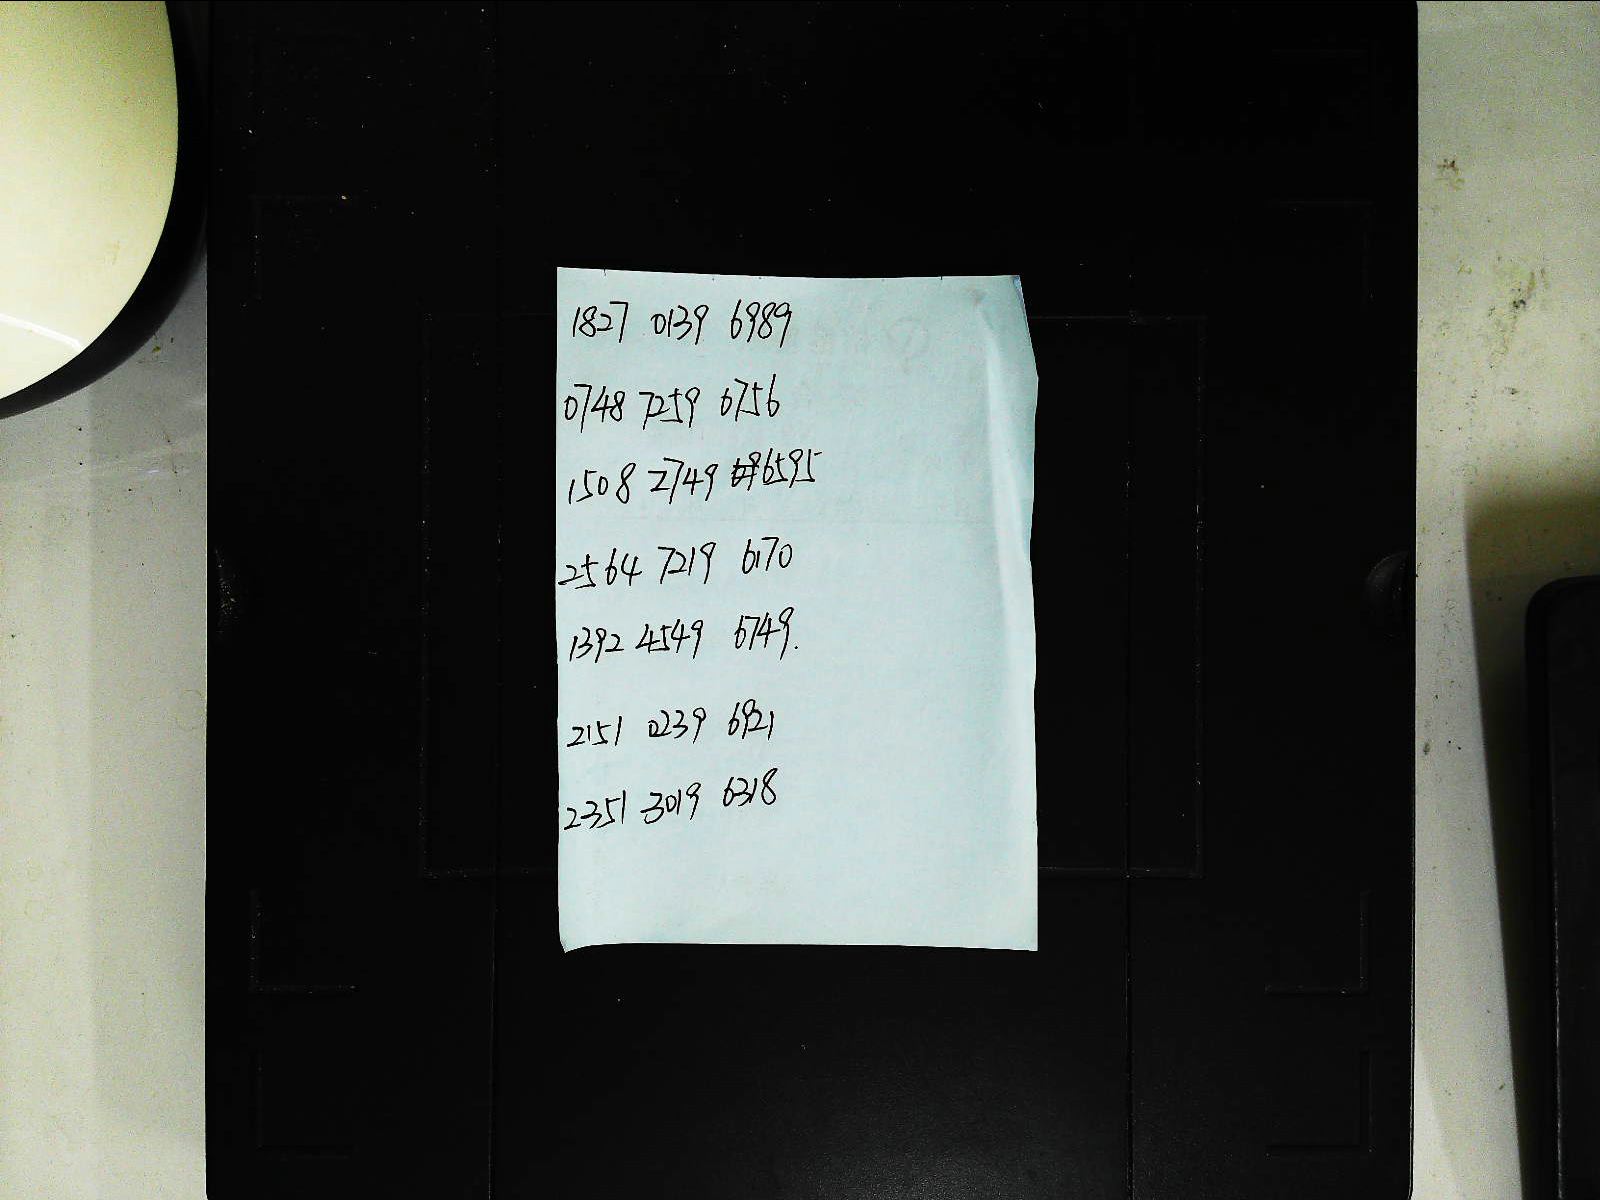 1827 0139 6989
0748 7259 6756
1508 2749 6595
2564 7219 6170
1392 4549 6749.
2151 0239 6921
2351 3019 6318